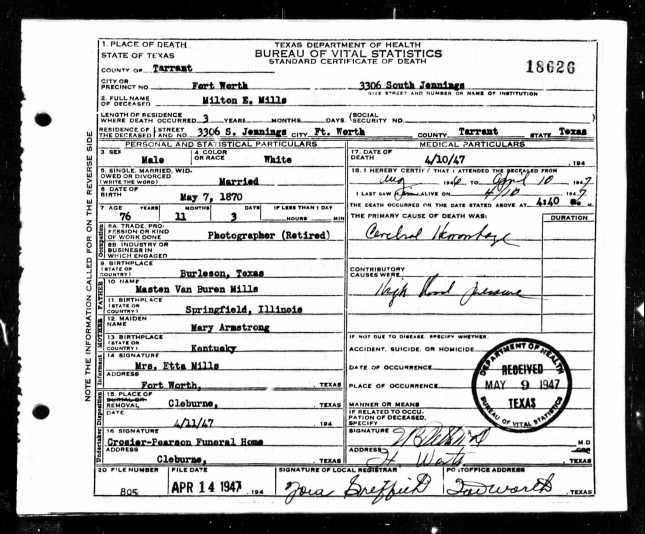 1. PLACE OF DEATH
STATE OF TEXAS
TEXAS DEPARTMENT OF HEALTH
BUREAU OF VITAL STATISTICS
STANDARD CERTIFICATE OF DEATH
18626
COUNTY OF Tarrant
CITY OR PRECINCT NO Fort Worth
3306 South Jennings
GIVE STREET AND NUMBER OR NAME OF INSTITUTION
2. FULL NAME OF DECEASED Milton E. Mills
LENGTH OF RESIDENCE WHERE DEATH OCCURRED 3 YEARS MONTHS DAYS (SOCIAL SECURITY NO.
RESIDENCE OF THE DECEASED STREET AND NO. 3306 S. Jennings CITY Ft. Worth COUNTY Tarrant STATE Texas
PERSONAL AND STATISTICAL PARTICULARS
3 SEX Male
4 COLOR OR RACE White
5. SINGLE, MARRIED, WIDOWED OR DIVORCED (WRITE THE WORD) Married
6 DATE OF BIRTH May 7, 1870
7 AGE 76 YEARS 11 MONTHS 3 DAYS IF LESS THAN 1 DAY HOURS MIN
8A TRADE, PROFESSION OR KIND OF WORK DONE Photographer (Retired)
8B INDUSTRY OR BUSINESS IN WHICH ENGAGED
9. BIRTHPLACE (STATE OR COUNTRY) Burleson, Texas
10 NAME Masten Van Buren Mills
11. BIRTHPLACE (STATE OR COUNTRY) Springfield, Illinois
12. MAIDEN NAME Mary Armstrong
13. BIRTHPLACE (STATE OR COUNTRY) Kentusky
14 SIGNATURE Mrs. Etta Mills
ADDRESS Fort Worth, TEXAS
15. PLACE OF REMOVAL Cleburne, TEXAS
DATE 4/11/47 194
16 SIGNATURE Crosier-Pearson Funeral Home
ADDRESS Cleburne, TEXAS
MEDICAL PARTICULARS
17. DATE OF DEATH 4/10/47 194
18. I HEREBY CERTIFY THAT I ATTENDED THE DECEASED FROM
Aug 1946 TO April 10 1947
I LAST SAW ALIVE ON 4/10 1947
THE DEATH OCCURRED ON THE DATE STATED ABOVE AT 4:40 M.
THE PRIMARY CAUSE OF DEATH WAS:
DURATION
Cerebral Hemorrhage
CONTRIBUTORY CAUSES WERE
High Blood Pressure
IF NOT DUE TO DISEASE, SPECIFY WHETHER
ACCIDENT, SUICIDE, OR HOMICIDE
DATE OF OCCURRENCE
PLACE OF OCCURRENCE
MANNER OR MEANS
IF RELATED TO OCCUPATION OF DECEASED, SPECIFY
SIGNATURE M.D
ADDRESS Ft Worth TEXAS
DEPARTMENT OF HEALTH
RECEIVED
MAY 9 1947
TEXAS
BUREAU OF VITAL STATISTICS
20 FILE NUMBER 805
FILE DATE APR 14 1947 194
SIGNATURE OF LOCAL REGISTRAR
POSTOFFICE ADDRESS Fort Worth, TEXAS
NOTE THE INFORMATION CALLED FOR ON THE REVERSE SIDE
Occupation
FATHER
MOTHER
Informant
Disposition
Undertaker